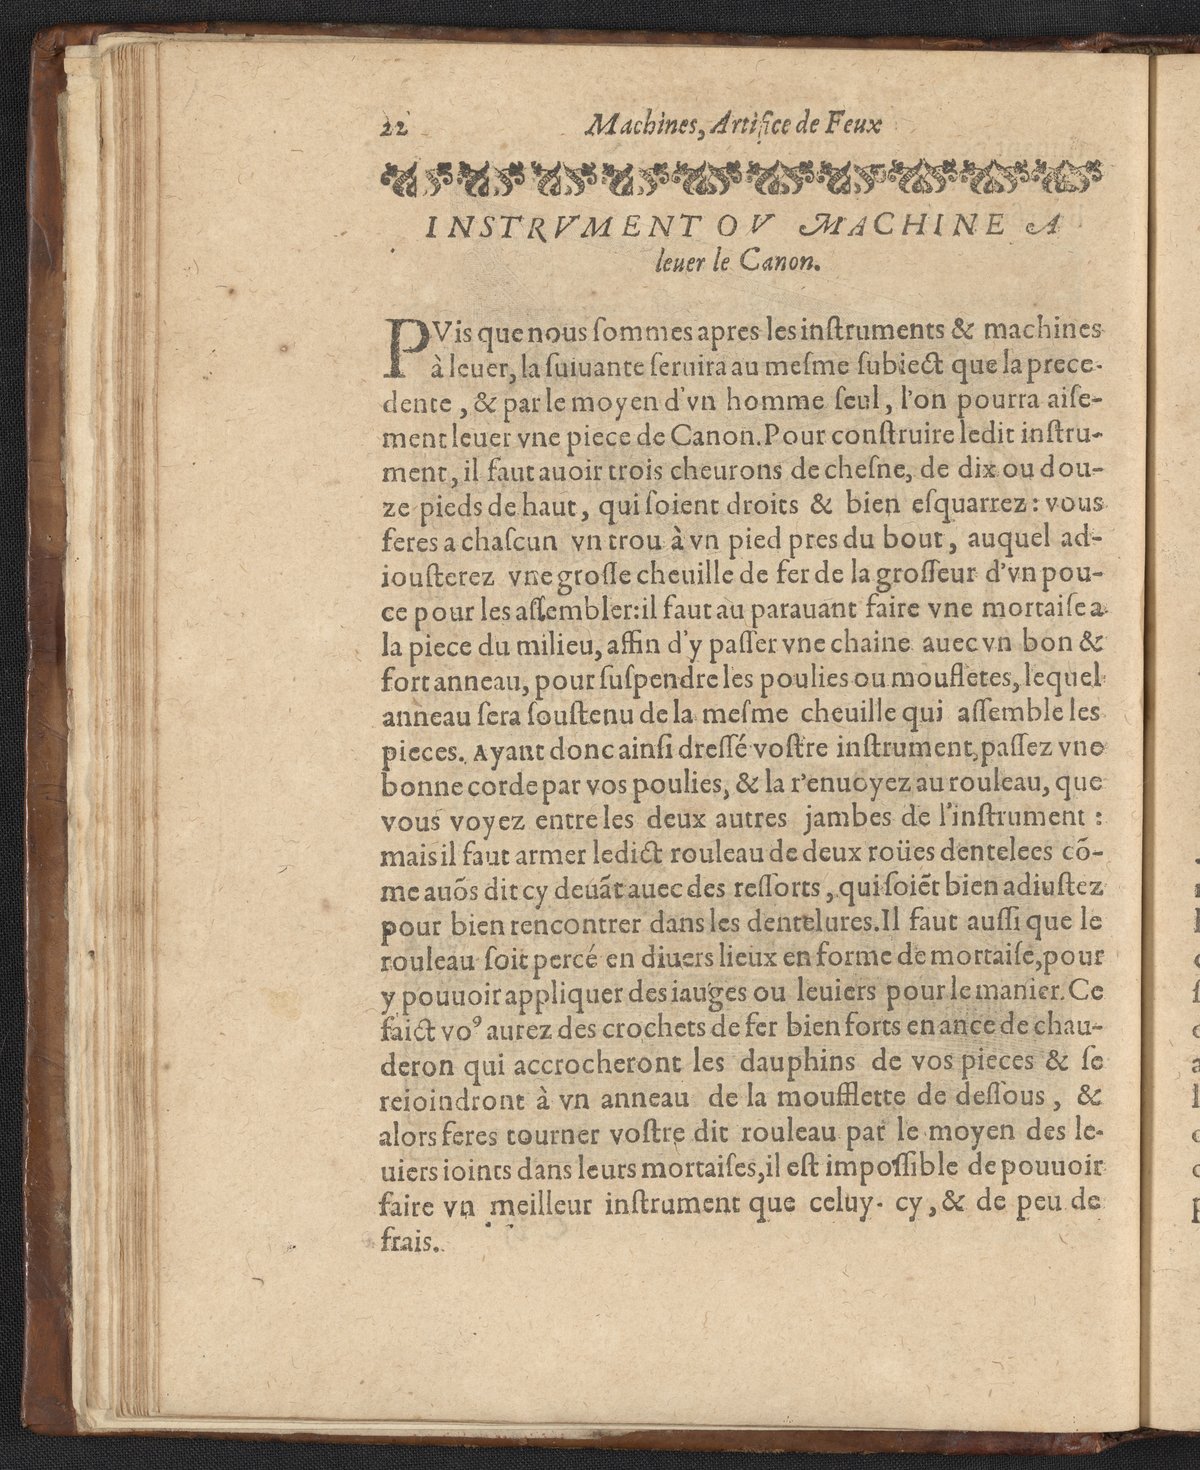 22 Machines, Artifice de Feux
INSTRVMENT OV MACHINE A
leuer le Canon.
PVis que nous ſommes apres les inſtruments & machines
à leuer, la ſuiuante ſeruira au meſme ſubiect que la prece-
dente, & par le moyen d'vn homme ſeul, l'on pourra aiſe-
ment leuer vne piece de Canon. Pour conſtruire ledit inſtru-
ment, il faut auoir trois cheurons de cheſne, de dix ou dou-
ze pieds de haut, qui ſoient droits & bien eſquarrez: vous
feres a chaſcun vn trou à vn pied pres du bout, auquel ad-
iouſterez vne groſſe cheuille de fer de la groſſeur d'vn pou-
ce pour les aſſembler: il faut au parauant faire vne mortaiſe a
la piece du milieu, affin d'y paſſer vne chaine auec vn bon &
fort anneau, pour ſuſpendre les poulies ou moufletes, lequel
anneau ſera ſouſtenu de la meſme cheuille qui aſſemble les
pieces. Ayant donc ainſi dreſſé voſtre inſtrument, paſſez vne
bonne corde par vos poulies, & la r'enuoyez au rouleau, que
vous voyez entre les deux autres jambes de l'inſtrument :
mais il faut armer ledict rouleau de deux roües dentelees cõ-
me auõs dit cy deuãt auec des reſſorts, qui ſoiẽt bien adiuſtez
pour bien rencontrer dans les dentelures. Il faut auſſi que le
rouleau ſoit percé en diuers lieux en forme de mortaiſe, pour
y pouuoir appliquer des iauges ou leuiers pour le manier. Ce
faict voꝰ aurez des crochets de fer bien forts en ance de chau-
deron qui accrocheront les dauphins de vos pieces & ſe
reioindront à vn anneau de la moufflette de deſſous, &
alors feres tourner voſtre dit rouleau par le moyen des le-
uiers ioints dans leurs mortaiſes, il eſt impoſſible de pouuoir
faire vn meilleur inſtrument que celuy-cy, & de peu de
frais.